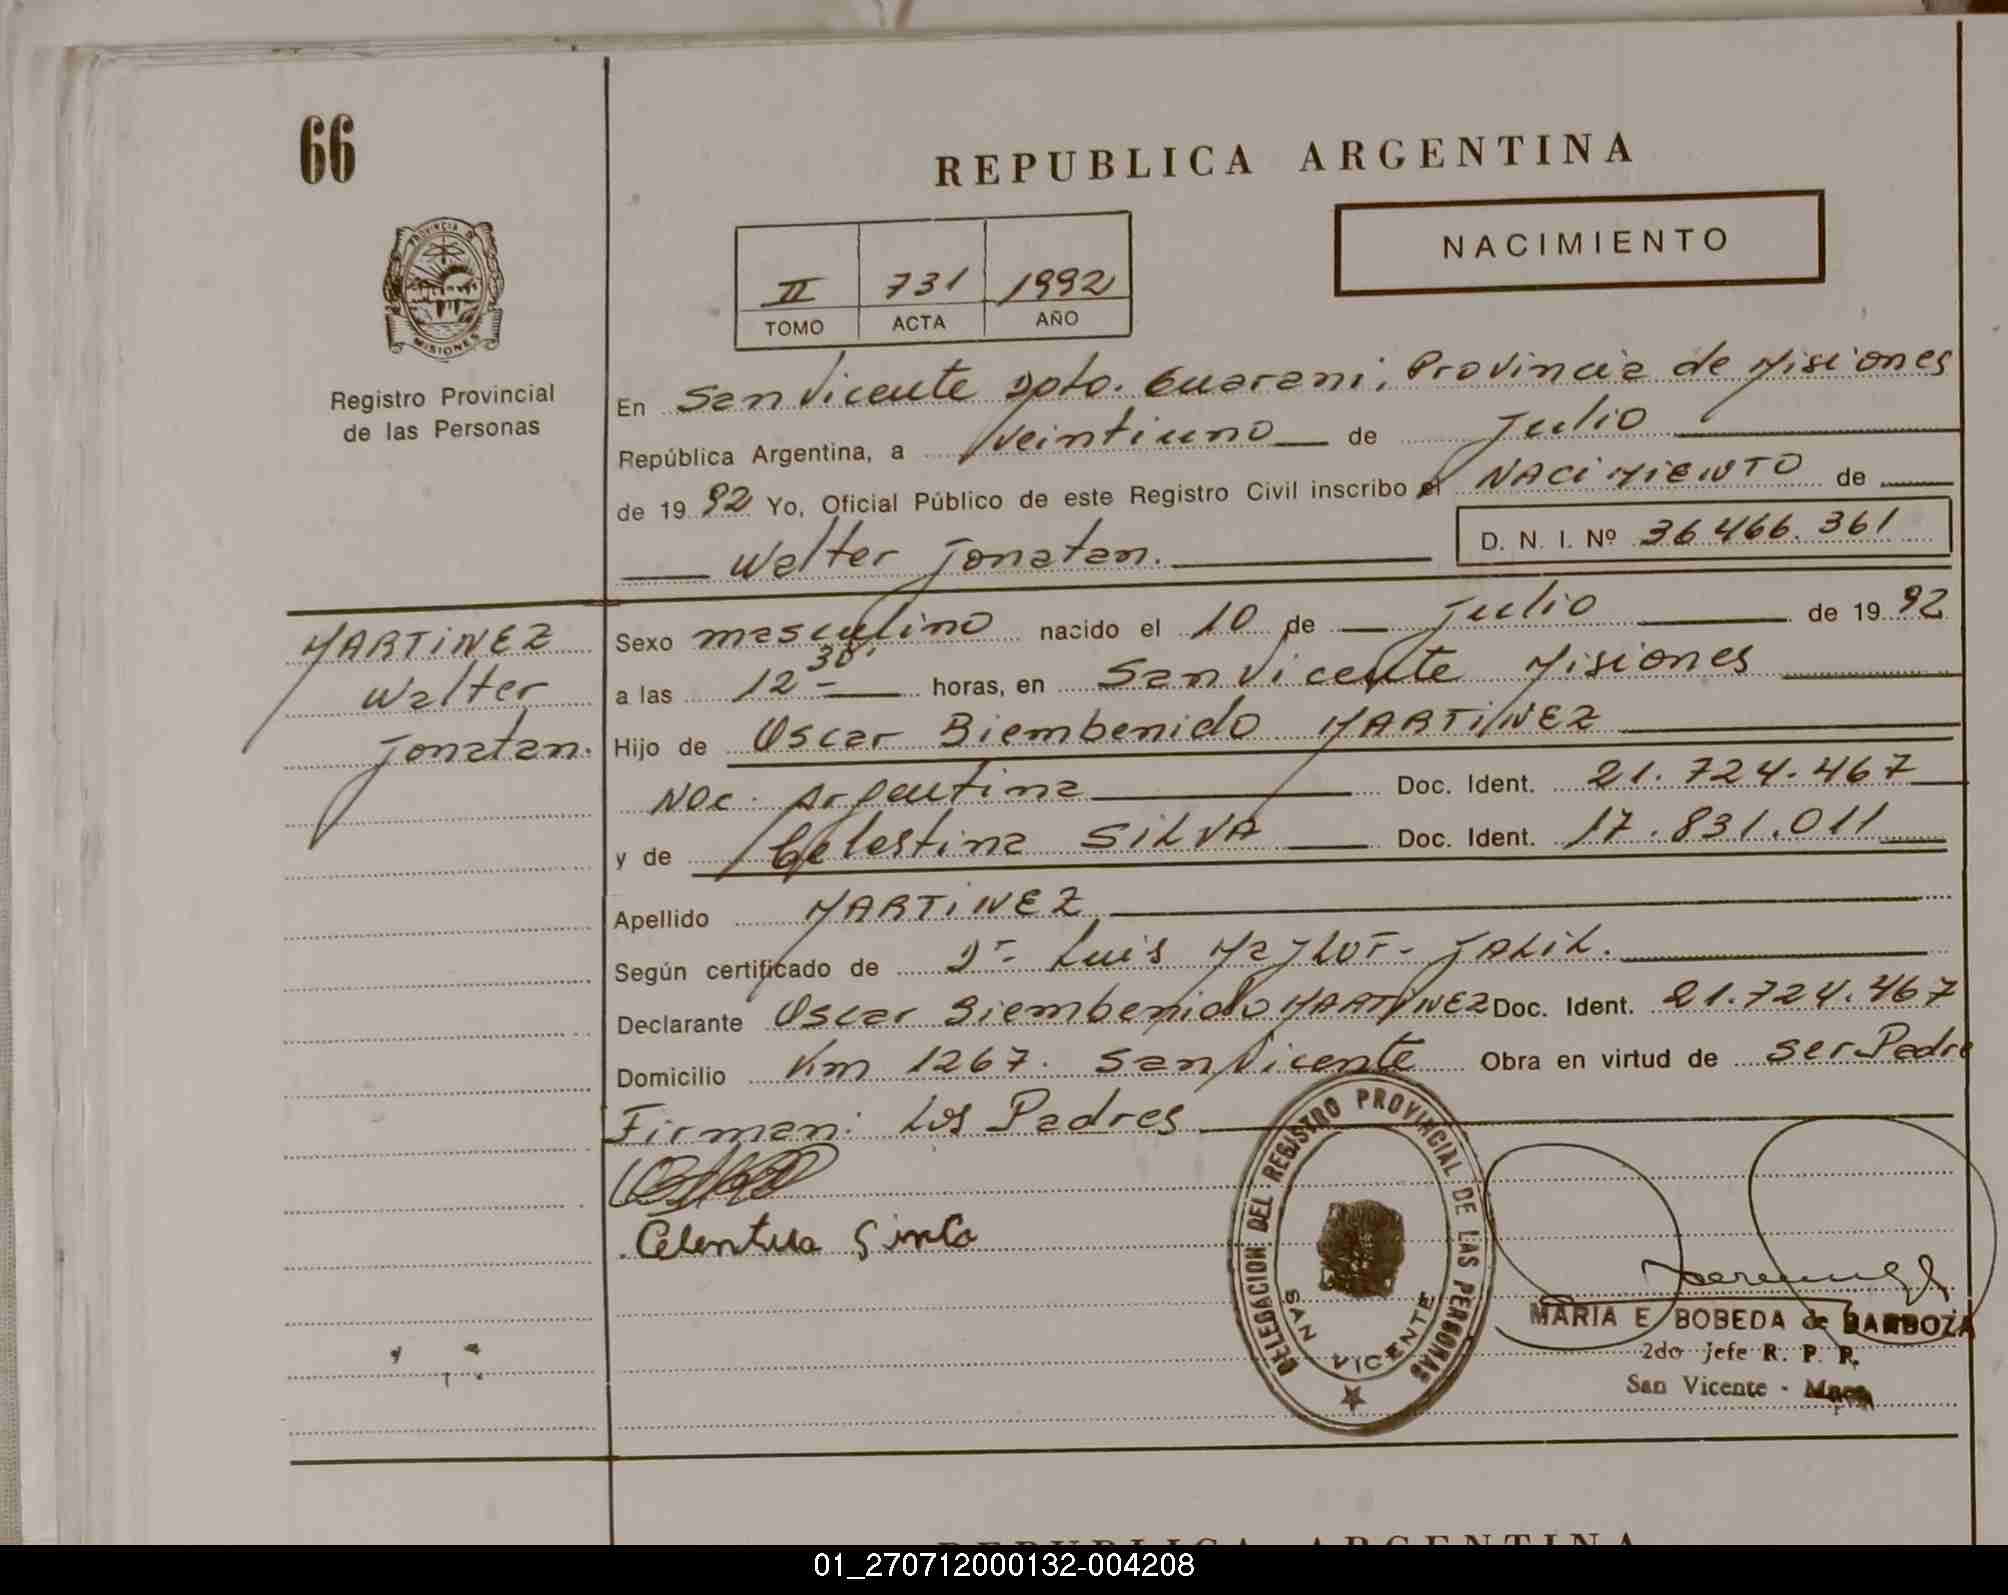 66
REPUBLICA ARGENTINA
NACIMIENTO
II 731 1992
TOMO ACTA AÑO
PROVINCIA DE
MISIONES
Registro Provincial
de las Personas
En San Vicente Dpto. Guarani, Provincia de Misiones
República Argentina, a veintiuno de Julio
de 1992 Yo, Oficial Público de este Registro Civil inscribo el NACIMIENTO de
Walter Jonatan. D. N. I. Nº 36466.361
MARTINEZ
Walter
Jonatan.
Sexo masculino nacido el 10 de Julio de 1992
a las 12 30' horas, en San Vicente Misiones
Hijo de Oscar Biembenido MARTINEZ
Nac. Argentina Doc. Ident. 21.724.467
y de Celestina SILVA Doc. Ident. 17.831.011
Apellido MARTINEZ
Según certificado de Dr- Luis JALIL.
Declarante Oscar Biembenido MARTINEZ Doc. Ident. 21.724.467
Domicilio Km 1267. San Vicente Obra en virtud de ser Padre
Firman: Los Padres
DELEGACION DEL REGISTRO PROVINCIAL DE LAS PERSONAS
SAN VICENTE
MARIA E BOBEDA de BARBOZA
2do Jefe R. P. P.
San Vicente -
REPUBLICA ARGENTINA
01_270712000132-004208